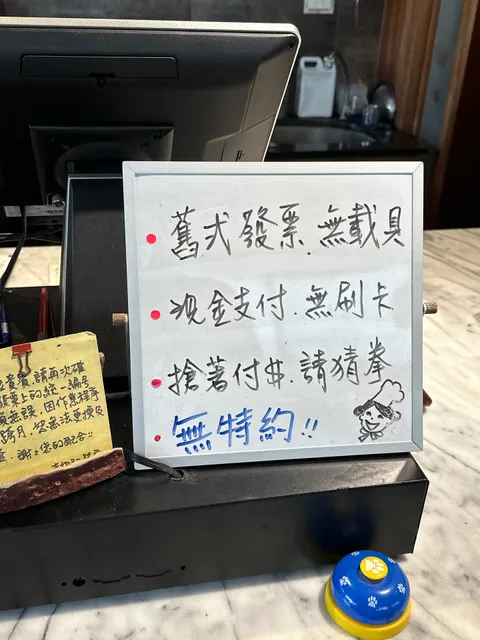 舊式發票.無載具
現金支付.無刷卡
搶著付$.請猜拳
無特約!!
貴賓,請再次確
發票上的統一編號
無誤,因作業程序
跨月,恕無法更換及
謝謝您的配合!!